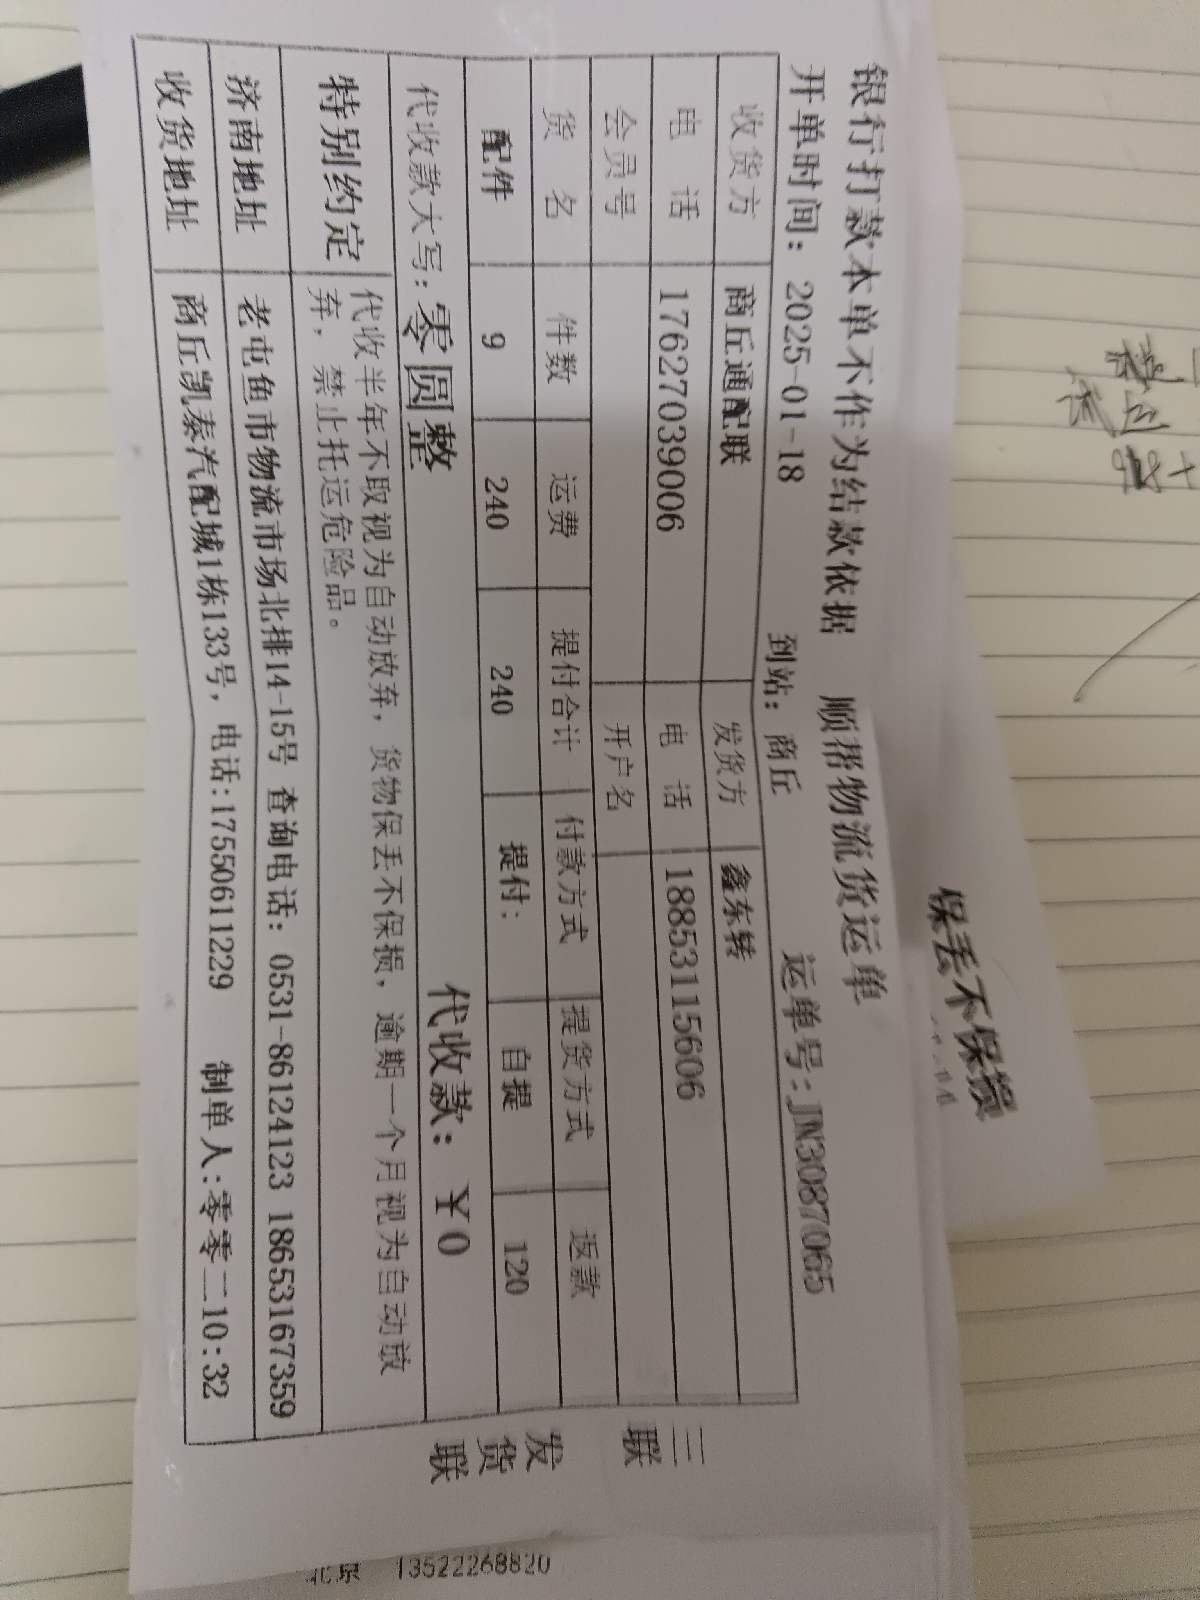 保丢不保损
银行打款本单不作为结款依据 顺帮物流货运单
开单时间: 2025-01-18 到站: 商丘 运单号:JN3087065
收货方 商丘通配联 发货方 鑫东转
电 话 17627039006 电 话 18853115606
会员号 开户名
货 名 件数 运费 提付合计 付款方式 提货方式 返款
配件 9 240 240 提付: 自提 120
代收款大写: 零圆整 代收款: ¥0
特别约定 代收半年不取视为自动放弃, 货物保丢不保损, 逾期一个月视为自动放
弃, 禁止托运危险品。
济南地址 老屯鱼市物流市场北排14-15号 查询电话: 0531-86124123 18653167359
收货地址 商丘凯泰汽配城1栋133号, 电话:17550611229 制单人:零零二10:32
三联
发货联
北京 13522268820